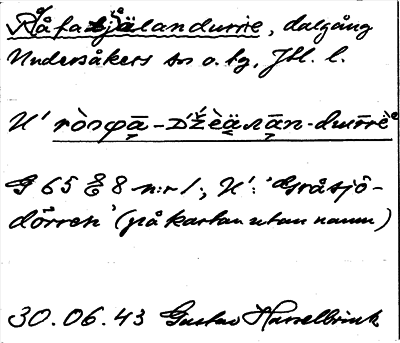 Råfasjälandurrie, dalgång
Undersåkers sn o. tg, Jtl. l.
U'
G 65 8 n:r 1; U': 'Gråsjö-
dörren' (på kartan utan namn)
30.06.43 Gustav Hasselbrink